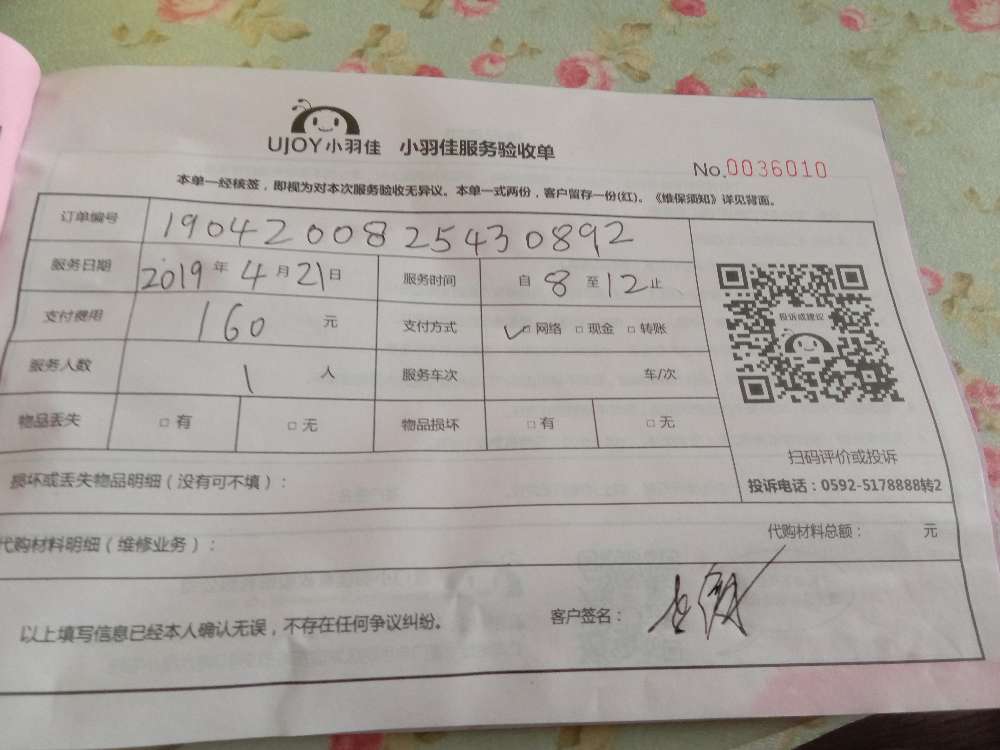 UJOY小羽佳 小羽佳服务验收单
No.0036010
本单一经核签，即视为对本次服务验收无异议。本单一式两份，客户留存一份(红)。《维保须知》详见背面。
订单编号 1904200825430892
服务日期 2019年4月21日 服务时间 自8至12止
支付费用 160元 支付方式 ✓□网络 □现金 □转账
服务人数 1人 服务车次 车/次
物品丢失 □有 □无 物品损坏 □有 □无
投诉或建议
扫码评价或投诉
投诉电话：0592-5178888转2
损坏或丢失物品明细（没有可不填）：
代购材料明细（维修业务）： 代购材料总额： 元
以上填写信息已经本人确认无误，不存在任何争议纠纷。 客户签名：